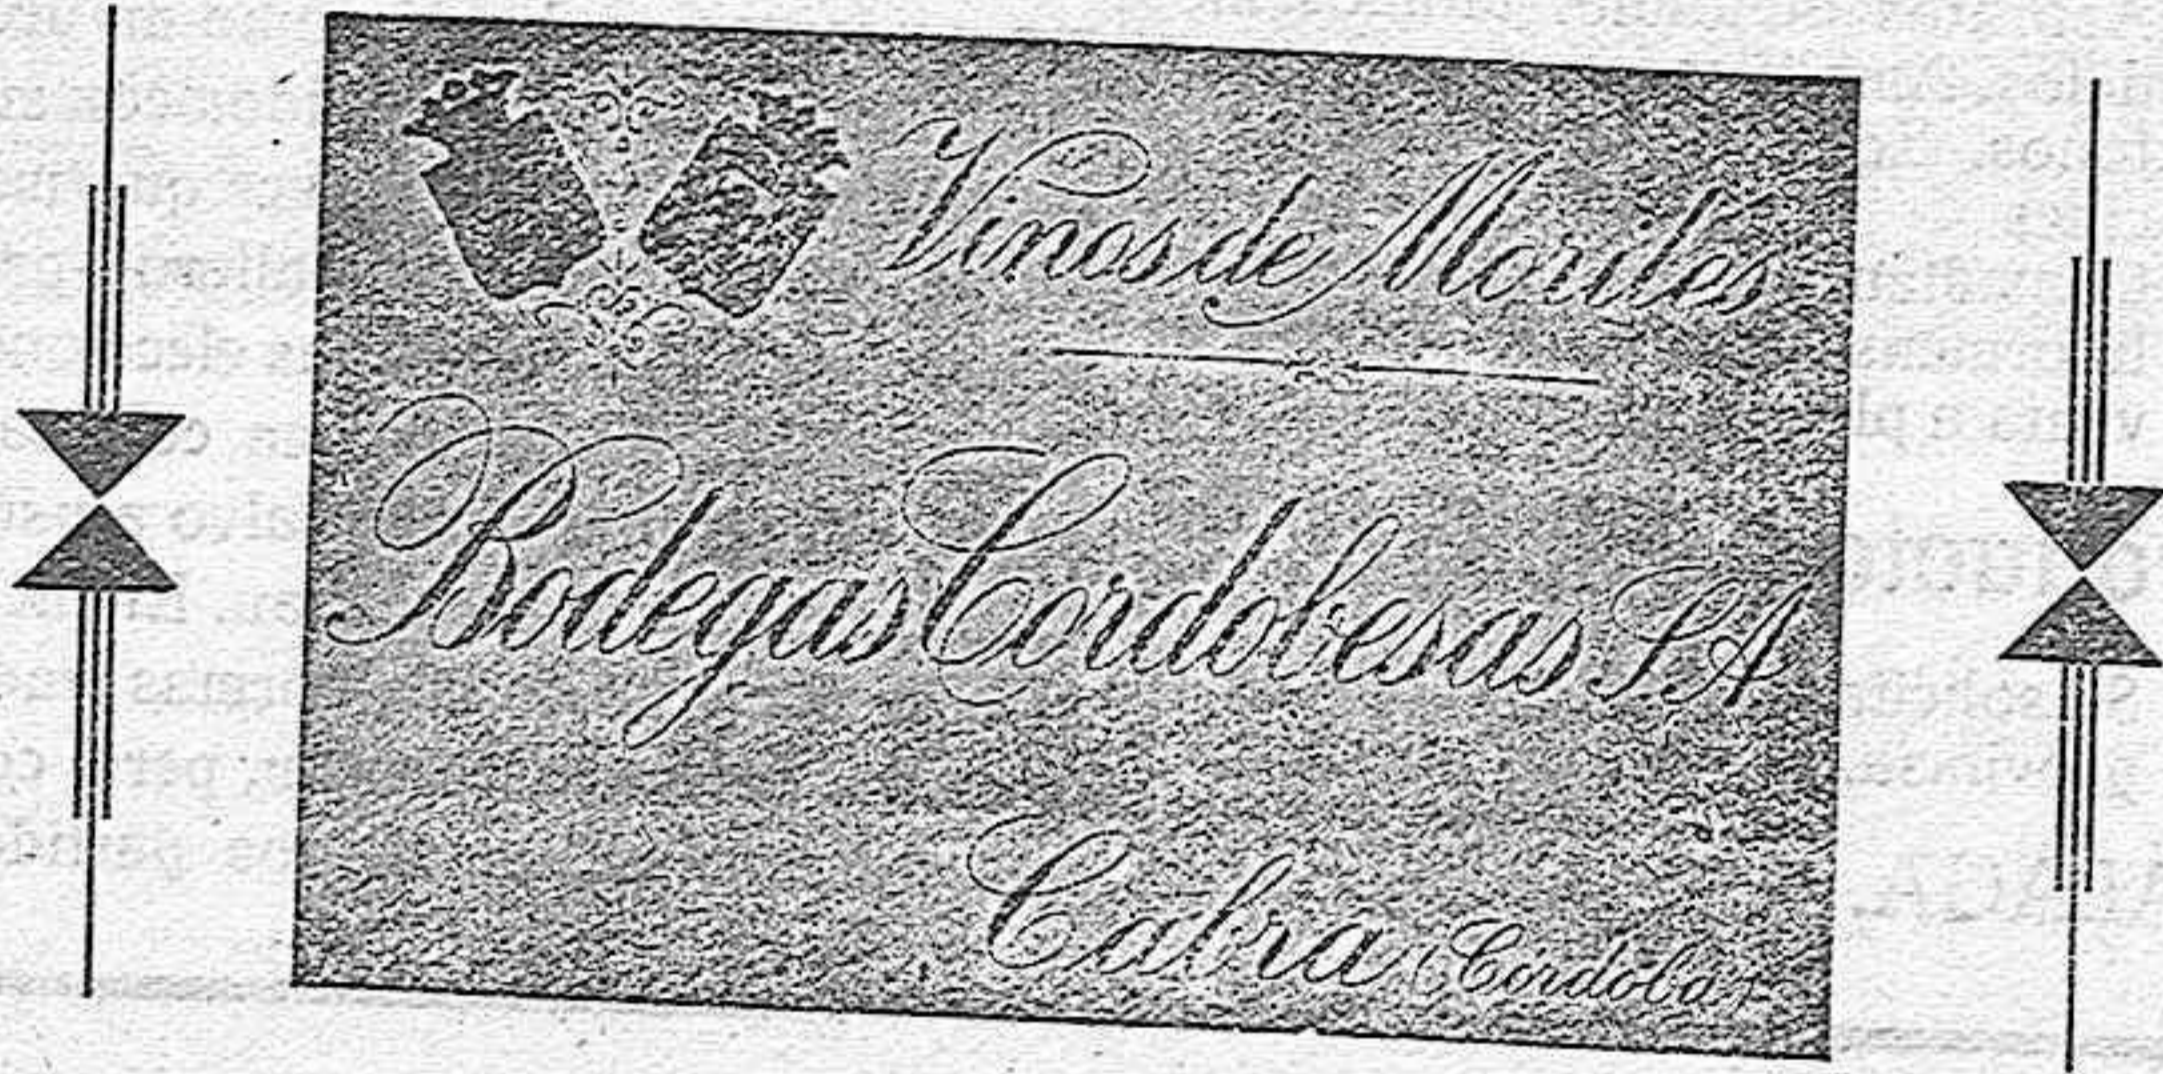 Vinos de Moriles
Bodegas Cordobesas S A
Cabra (Cordoba)